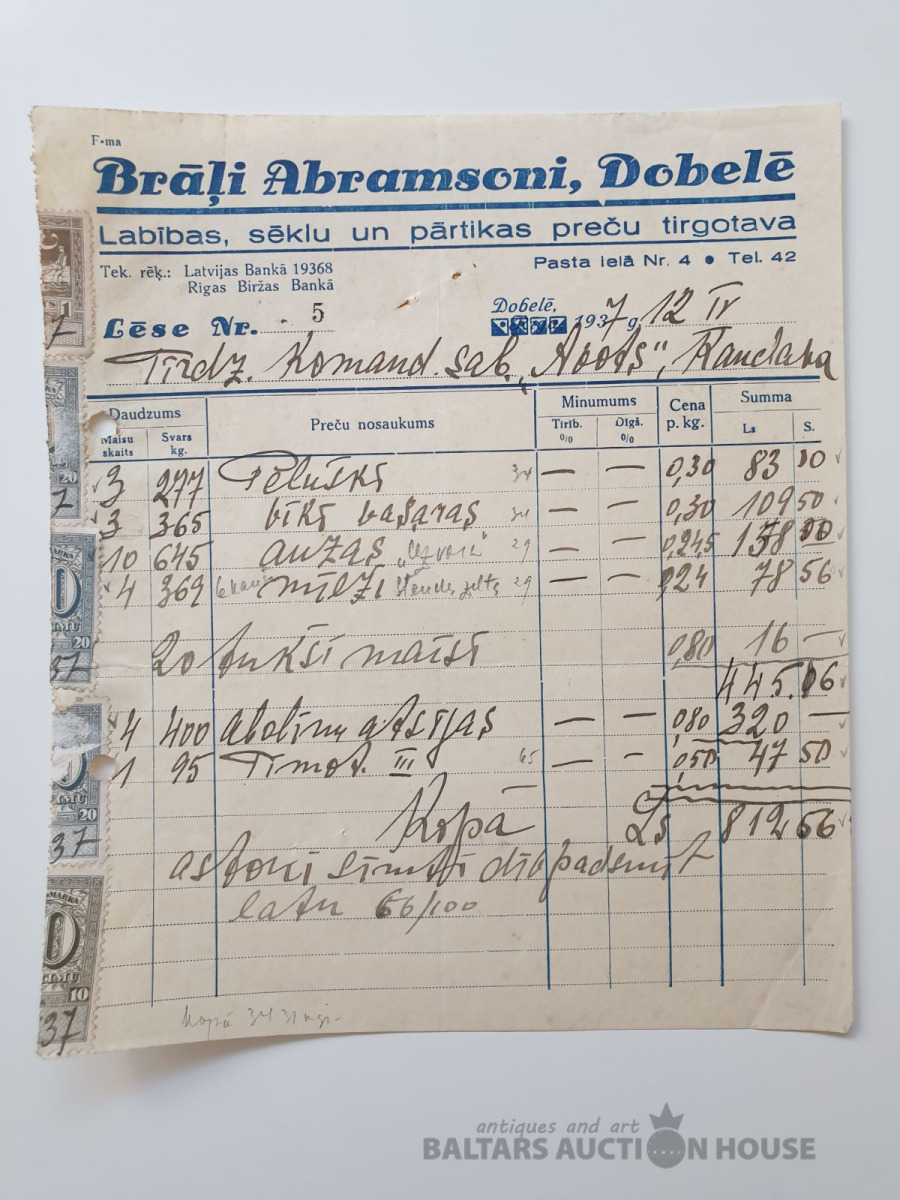 F-ma
Brāļi Abramsoni, Dobelē
Labības, sēklu un pārtikas preču tirgotava
Tek. rēķ.: Latvijas Bankā 19368
Rīgas Biržas Bankā
Pasta ielā Nr. 4 • Tel. 42
Lēse Nr. 5
Dobelē, 1937 g. 12 IV
Tirdz. Komand. sab. „Avots”, Kandava
Daudzums Preču nosaukums Minumums Cena p. kg. Summa
Maisu skaits Svars kg. Tīrib. 0/0 Dīgš. 0/0 Ls S.
3 277 Pēluški 34 — — 0,30 83 10
3 365 vīķi vasaras 34 — — 0,30 109 50
10 645 auzas 29 — — 0,245 158 00
4 369 mīeži Stendes 29 — — 0,24 78 56
20 tukši maisi 0,80 16 —
445.06
4 400 aboliņu atsijas — — 0,80 320 —
1 95 Timot. III 65 — — 0,50 47 50
Kopā Ls 812 56
astoņi simti divpadsmit
latu 56/100
Kopā
20
20
20
10
37
37
37
antiques and art
BALTARS AUCTION HOUSE